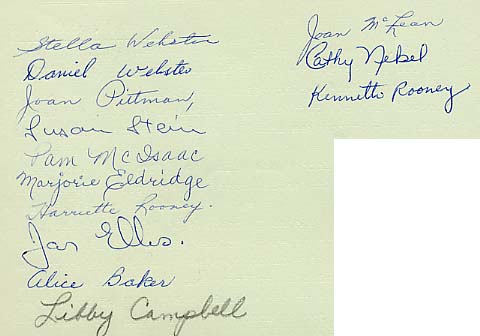 Stella Webster
Daniel Webster
Joan Pittman,
Susan Stein
Pam McIsaac
Marjorie Eldridge
Harriette Rooney.
Jan Elles.
Alice Baker
Libby Campbell
Joan McLean
Cathy Nebel
Kenneth Rooney